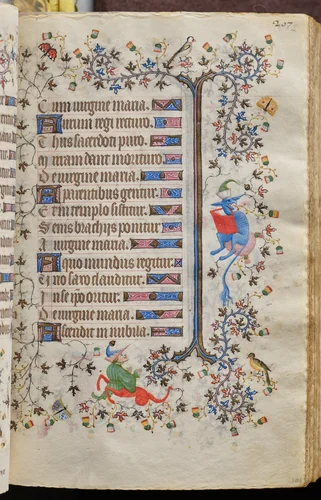 207
Cum uirgine maria.
Aurum regi regum.
Thus sacerdoti puro.
Quam dant morituro
De uirgine maria.
A parentibus genitur.
Et in templo sistitur.
Senis brachijs ponitur
De uirgine maria.
A quo mundus regitur.
Et in saxo clauditur
In se ipo oritur.
De uirgine maria.
Ascendit in nubila.